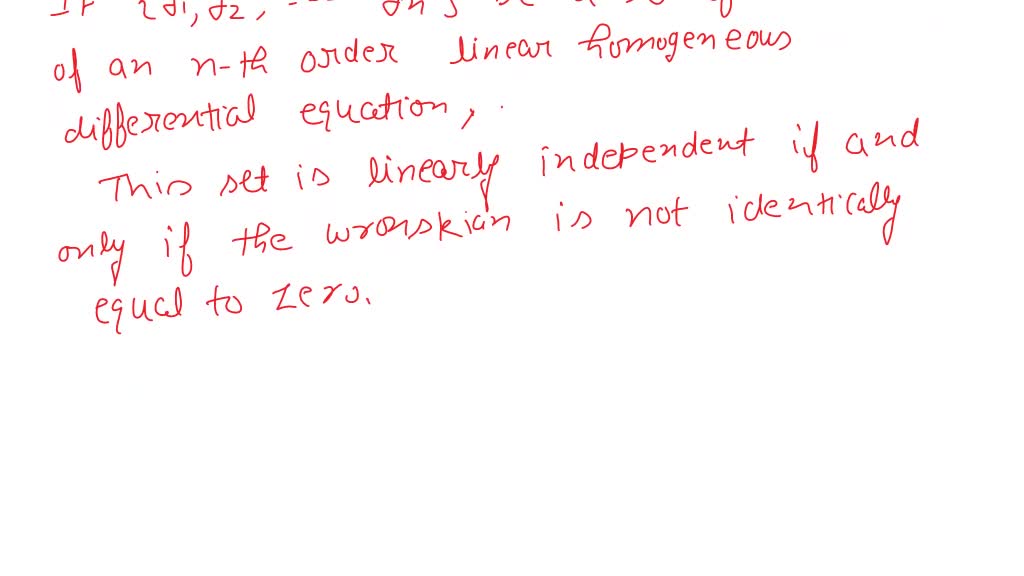 If {y1, y2, --- yn} be a set of
of an n-th order linear homogeneous
differential equation,
This set is linearly independent if and
only if the wronskian is not identically
equal to zero.